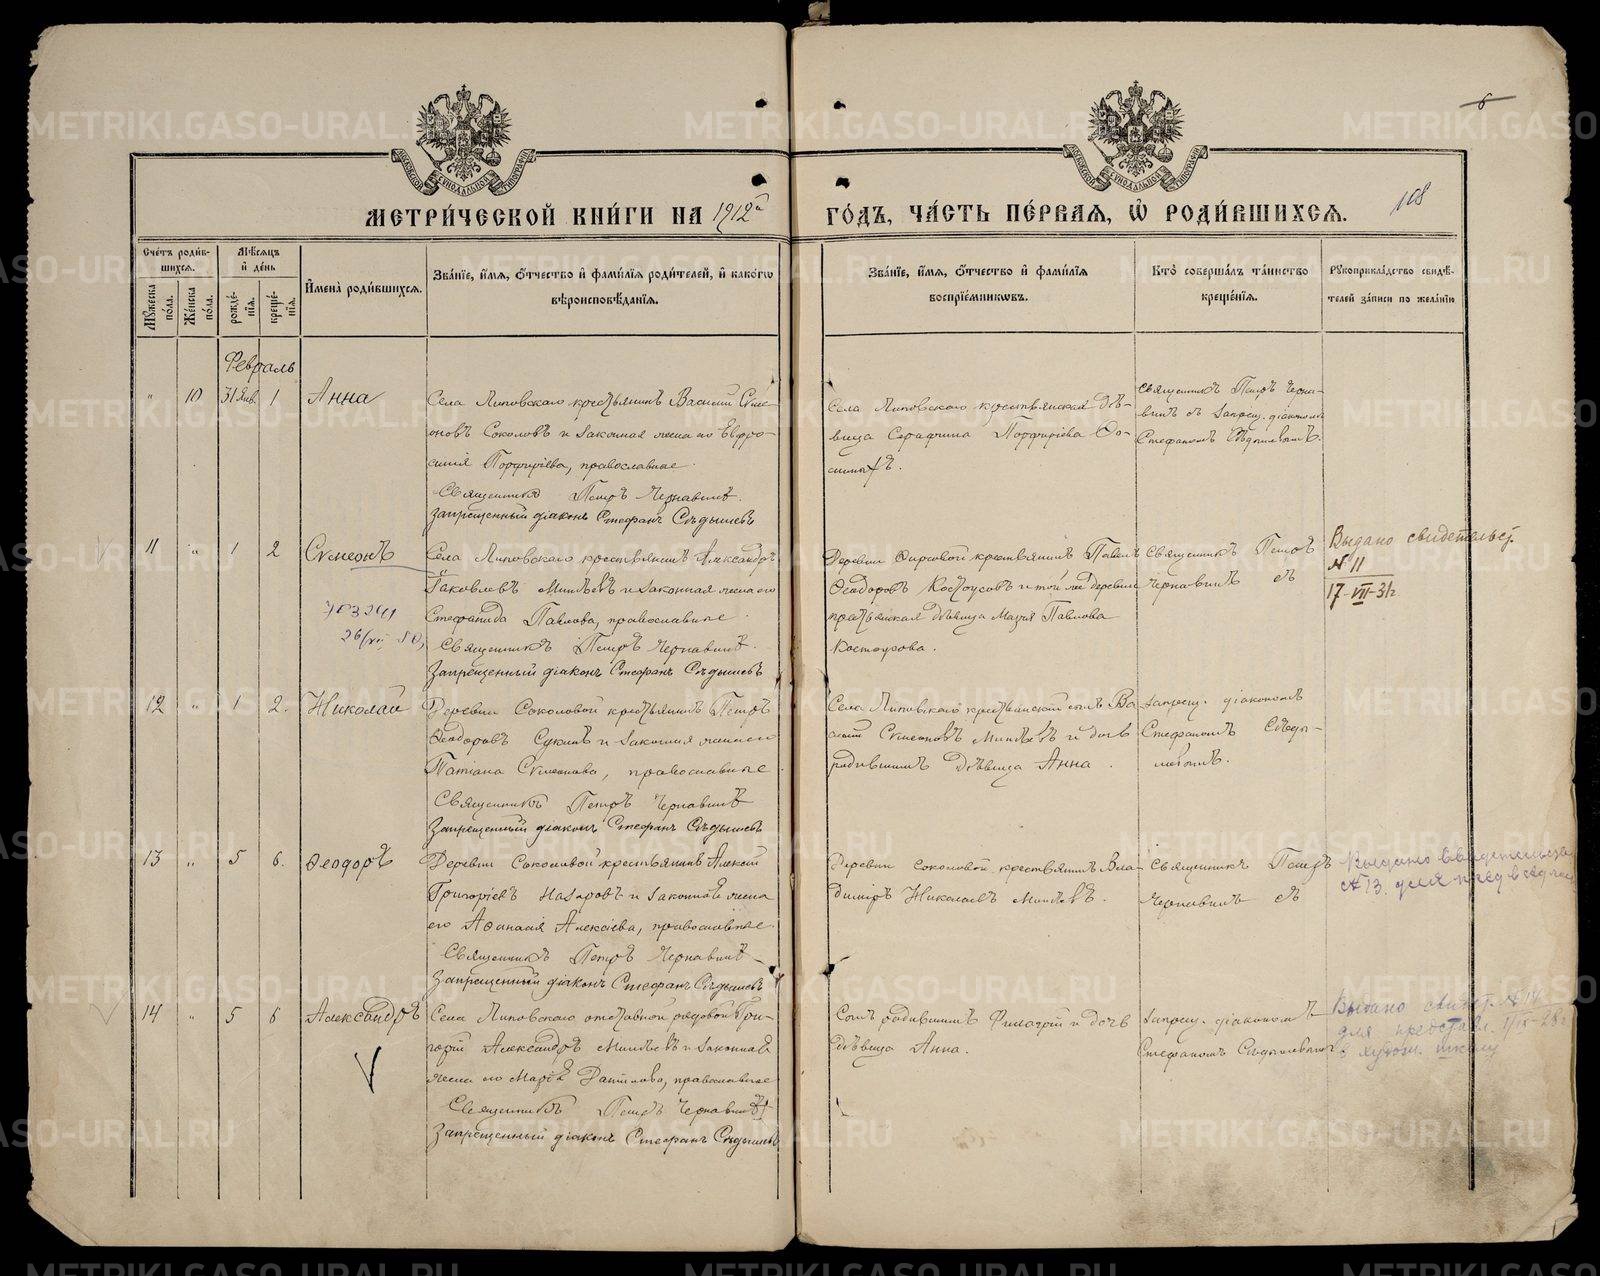 МЕТРИ́ЧЕСКОЙ КНИ́ГИ НА 1912й ГО́ДЪ, ЧА́СТЬ ПЕ́РВАЯ, Ѡ РОДИ́ВШИХСЯ.
6
108
МОСКОВСКОЙ СѴНОДАЛЬНОЙ ТИПОГРАФІИ
МОСКОВСКОЙ СѴНОДАЛЬНОЙ ТИПОГРАФІИ
Сче́тъ роди́вшихся.
Му́жеска по́ла.
Же́нска по́ла.
Мѣ́сяцъ и҆ де́нь
рожде́нїѧ.
креще́нїѧ.
И҆мена̀ роди́вшихсѧ.
Зва́нїе, и҆́мѧ, ѻ҆́тчество и҆ фами́лїѧ роди́телей, и҆ како́гѡ
вѣроисповѣ́данїѧ.
Зва́нїе, и҆́мѧ, ѻ҆́тчество и҆ фами́лїѧ
воспрїе́мникѡвъ.
Кто̀ соверша́лъ та́инство
креще́нїѧ.
Рꙋкоприкла́дство свидѣ́-
телей за́писи по жела́нїю
Февраль
" 10 31 Янв. 1 Анна
Села Липовскаго крестьянинъ Василий Симе-
оновъ Соколовъ и законная жена его Евфро-
синія Порфиріева, православные.
Священникъ Петръ Чернавинъ.
Запрещенный діаконъ Стефанъ Сѣдышевъ
Села Липовского крестьянская дѣ-
вица Серафима Порфиріева Фо-
миныхъ.
Священникъ Петръ Черна-
винъ съ запрещ. діакономъ
Стефаномъ Сѣдышевымъ.
11 " 1 2 Симеонъ
Села Липовскаго крестьянинъ Александръ
Іаковлевъ Минѣевъ и законная жена его
Стефанида Павлова, православные.
Священникъ Петръ Чернавинъ.
Запрещенный діаконъ Стефанъ Сѣдышевъ
Деревни Фирсовой крестьянинъ Павелъ
Феодоровъ Костоусовъ и той же деревни
крестьянская дѣвица Марія Павлова
Костоусова.
Священникъ Петръ
Чернавинъ съ
Выдано свидетельст.
№ 11
17-VII-31г
12 " 1 2. Николай
Деревни Соколовой крестьянинъ Петръ
Феодоровъ и законная жена его
Татіана Симеонова, православные
Священникъ Петръ Чернавинъ
Запрещенный діаконъ Стефанъ Сѣдышевъ
Села Липовскаго крестьянский сынъ Ва-
силий Симеоновъ Минѣевъ и дочь
родившимъ дѣвица Анна.
Запрещ. діакономъ
Стефаномъ Сѣды-
шевымъ.
13 " 5 6. Феодоръ
Деревни Соколовой крестьянинъ Алексій
Григоріевъ Назаровъ и законная жена
его Афанасія Алексіева, православные.
Священникъ Петръ Чернавинъ
Запрещенный діаконъ Стефанъ Сѣдышевъ
Деревни Соколовой крестьянинъ Вла-
димиръ Николаевъ Минѣевъ.
Священникъ Петръ
Чернавинъ съ
Выдано свидетельство
№ 13. для
14 " 5 6 Александръ
Села Липовскаго отставной рядовой Гри-
горій Александровъ Минѣевъ и законная
жена его Марія Данилова, православные
Священникъ Петръ Чернавинъ
Запрещенный діаконъ Стефанъ Сѣдышевъ
Сынъ родившимъ Филагрій и дочь
дѣвица Анна.
Запрещ. діакономъ
Стефаномъ Сѣдышевымъ
Выдано свидет. № 14
для представл.
школу
METRIKI.GASO-URAL.RU